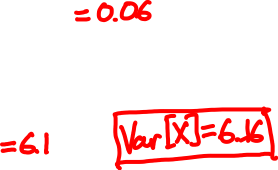 = 0.06
= 6.1
Var[X] = 6.16